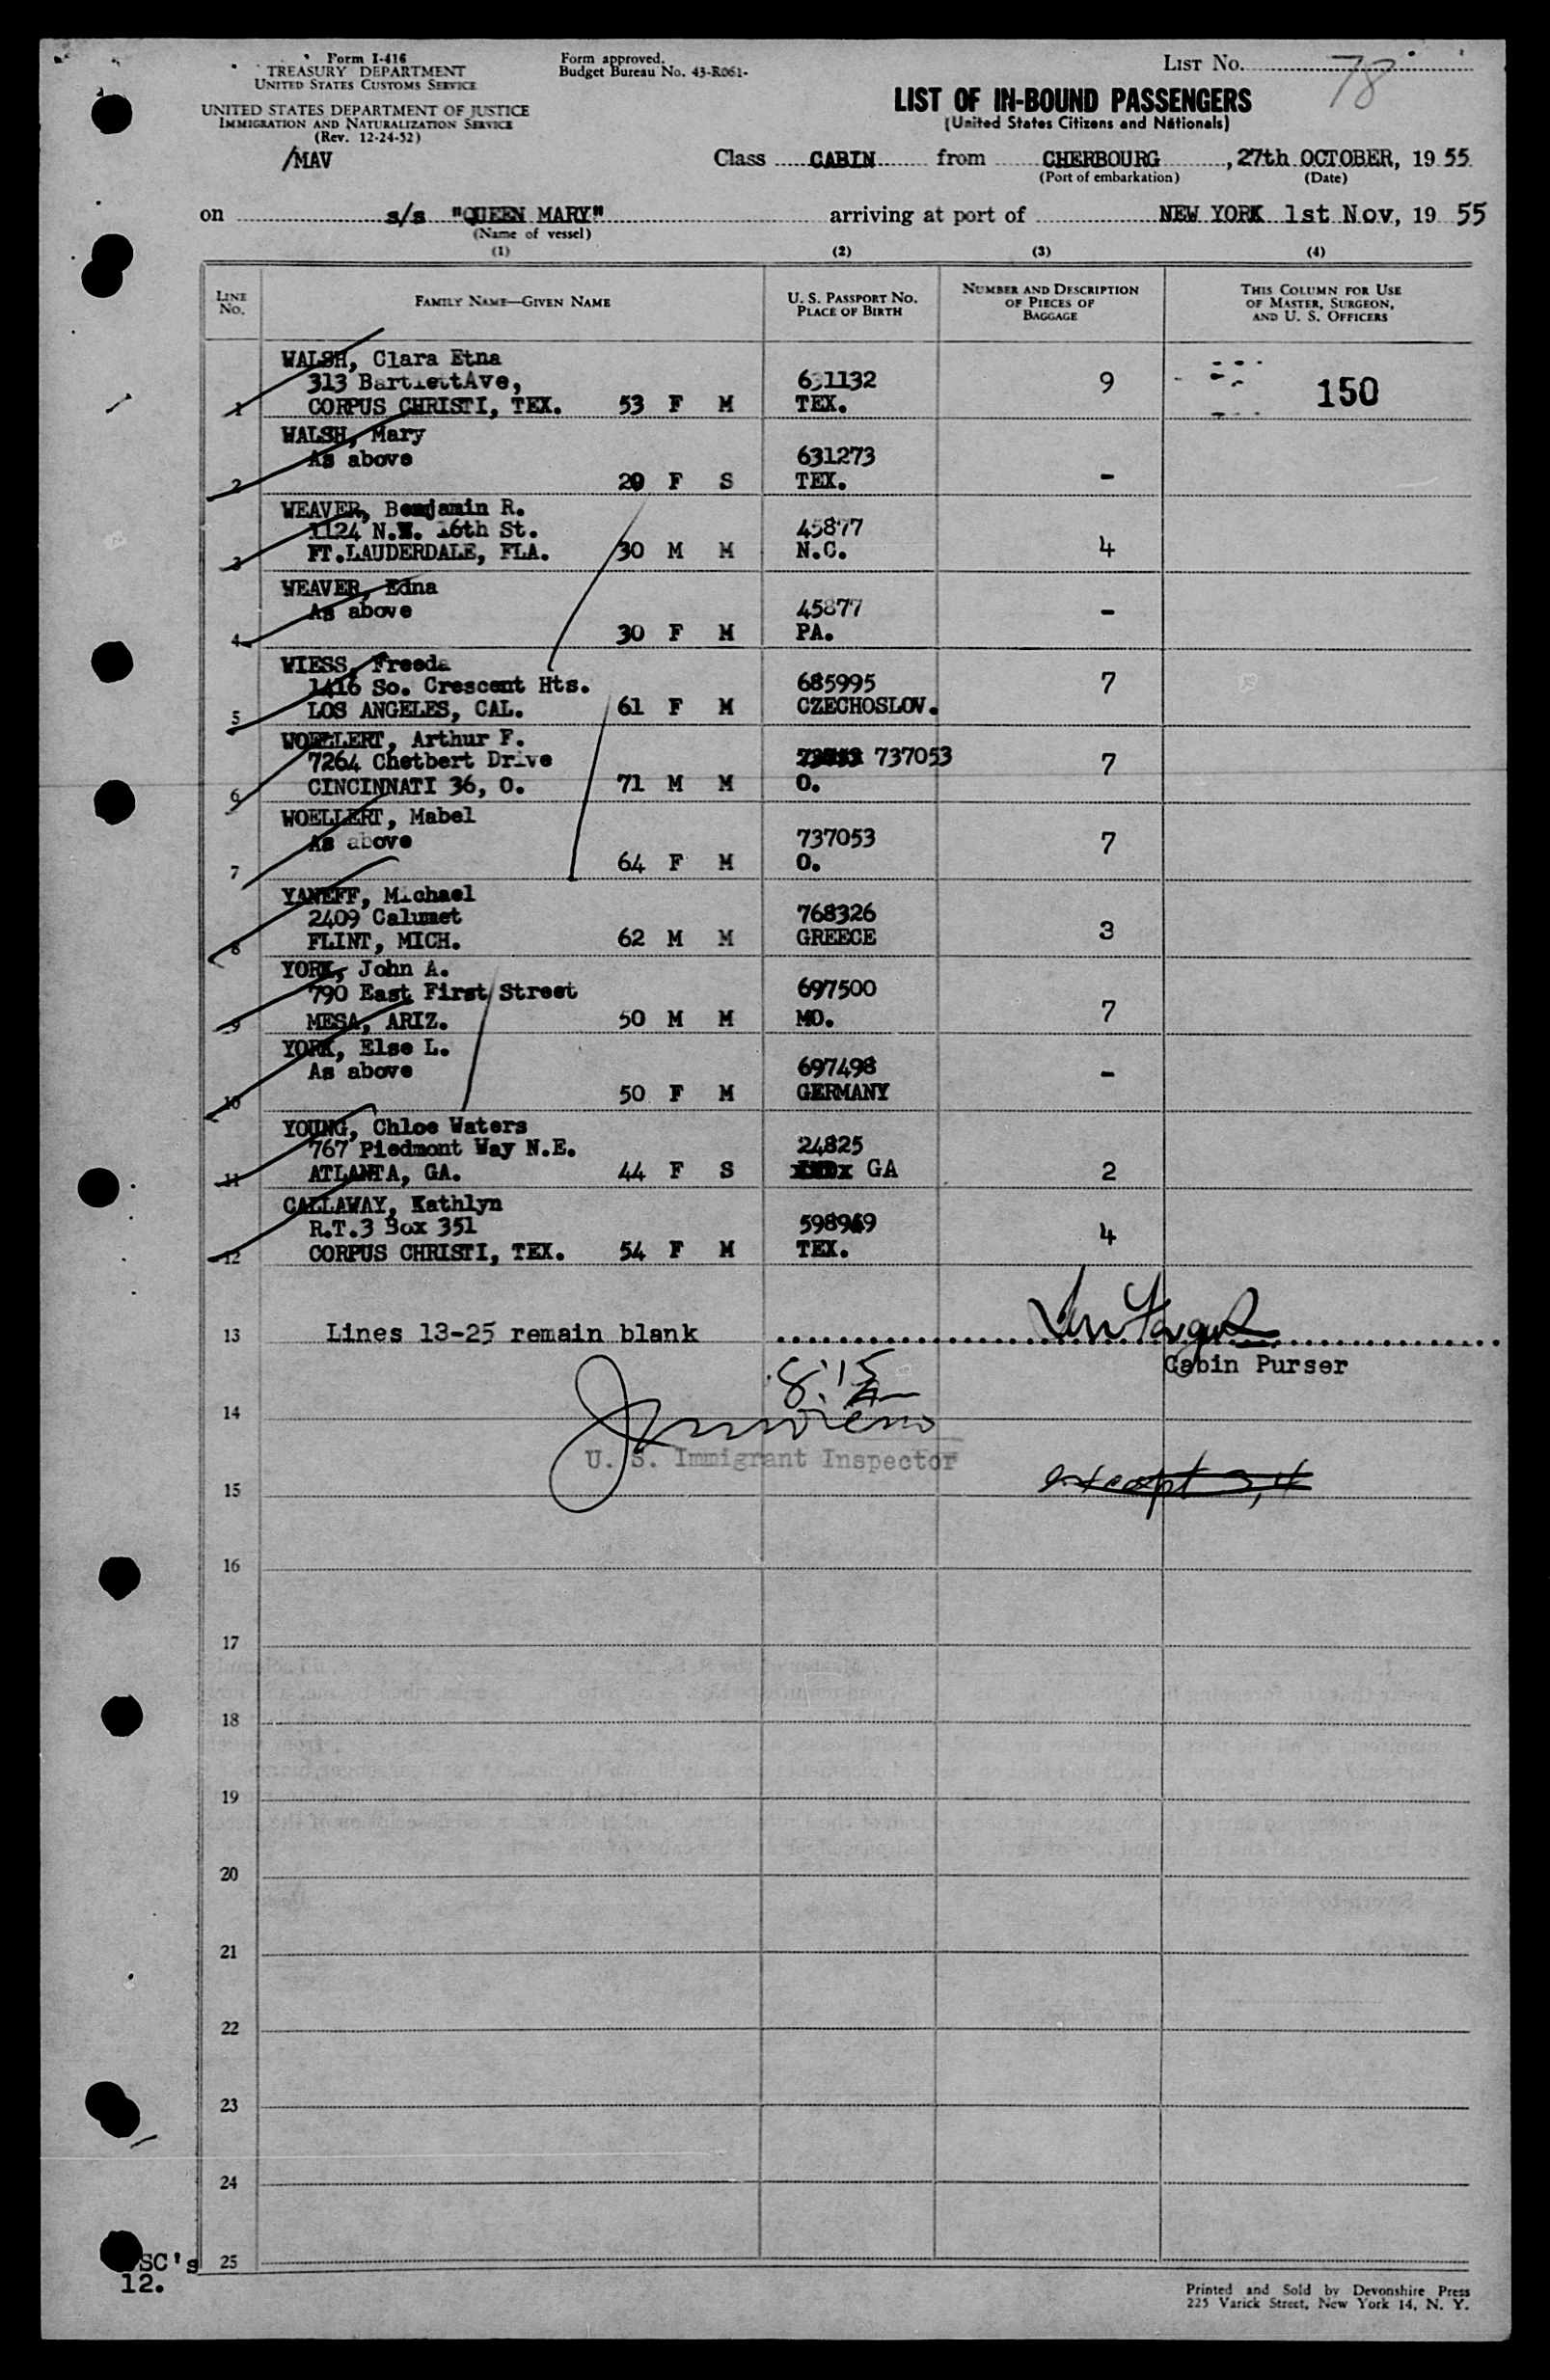 Form I-416
TREASURY DEPARTMENT
UNITED STATES CUSTOMS SERVICE
UNITED STATES DEPARTMENT OF JUSTICE
IMMIGRATION AND NATURALIZATION SERVICE
(Rev. 12-24-52)
/MAV
Form approved.
Budget Bureau No. 43-R061-
LIST NO. 78
LIST OF IN-BOUND PASSENGERS
(United States Citizens and Nationals)
Class CABIN from CHERBOURG, 27th OCTOBER, 1955
(Port of embarkation) (Date)
on s/s "QUEEN MARY" arriving at port of NEW YORK 1st Nov, 19 55
(Name of vessel)
(1) (2) (3) (4)
LINE NO.
FAMILY NAME—GIVEN NAME
U. S. PASSPORT NO.
PLACE OF BIRTH
NUMBER AND DESCRIPTION
OF PIECES OF
BAGGAGE
THIS COLUMN FOR USE
OF MASTER, SURGEON,
AND U. S. OFFICERS
WALSH, Clara Etna
313 BartlettAve, 631132 9 150
1 CORPUS CHRISTI, TEX. 53 F M TEX.
WALSH, Mary
As above 631273
2 20 F S TEX. -
WEAVER, Benjamin R.
1124 N.E. 16th St. 45877
3 FT.LAUDERDALE, FLA. 30 M M N.C. 4
WEAVER, Edna
As above 45877 -
4 30 F M PA.
WIESS, Freeda
1416 So. Crescent Hts. 685995 7
5 LOS ANGELES, CAL. 61 F M CZECHOSLOV.
WOELLERT, Arthur F.
7264 Chetbert Drive 737053 7
6 CINCINNATI 36, O. 71 M M O.
WOELLERT, Mabel
As above 737053 7
7 64 F M O.
YANEFF, Michael
2409 Calumet 768326
8 FLINT, MICH. 62 M M GREECE 3
YORK, John A.
790 East First Street 697500
9 MESA, ARIZ. 50 M M MO. 7
YORK, Else L.
As above 697498 -
10 50 F M GERMANY
YOUNG, Chloe Waters
767 Piedmont Way N.E. 24825
11 ATLANTA, GA. 44 F S GA 2
CALLAWAY, Kathlyn
R.T.3 Box 351 4
12 CORPUS CHRISTI, TEX. 54 F M TEX.
13 Lines 13-25 remain blank
Cabin Purser
8:15
14
U. S. Immigrant Inspector
except 3, 4
15
16
17
18
19
20
21
22
23
24
25
SC's
12.
Printed and Sold by Devonshire Press
225 Varick Street, New York 14, N. Y.